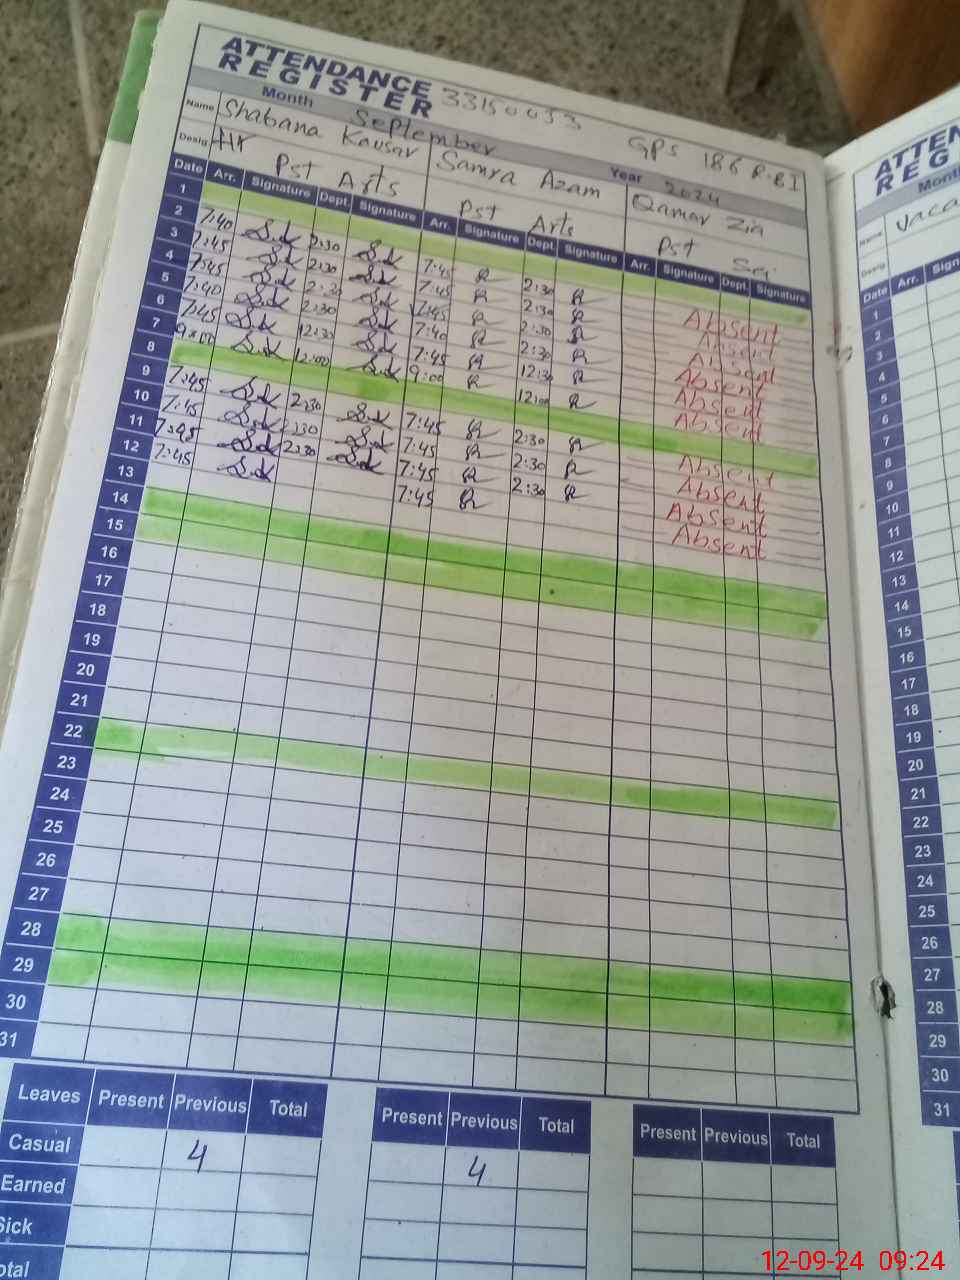 ATTENDANCE
REGISTER 33150053 GPS 186 R.BI
Month September Year 2024
Name Shabana Kausar Samra Azam Qamar Zia
Desig. Hr Pst Arts Pst Arts Pst Sci
Date Arr. Signature Dept. Signature Arr. Signature Dept. Signature Arr. Signature Dept. Signature
1
2 7:40 2:30 7:45 2:30 Absent
3 7:45 2:30 7:45 2:30 Absent
4 7:45 2:30 7:45 2:30 Absent
5 7:40 2:30 7:40 2:30 Absent
6 7:45 12:30 7:45 12:30 Absent
7 9:00 12:00 9:00 12:00 Absent
8
9 7:45 2:30 7:45 2:30 Absent
10 7:45 2:30 7:45 2:30 Absent
11 7:45 2:30 7:45 2:30 Absent
12 7:45 7:45 Absent
13
14
15
16
17
18
19
20
21
22
23
24
25
26
27
28
29
30
31
Leaves Present Previous Total Present Previous Total Present Previous Total
Casual 4 4
Earned
Sick
otal
ATTEN
REG
Month
Name Vaca
Desig.
Date Arr. Sign
1
2
3
4
5
6
7
8
9
10
11
12
13
14
15
16
17
18
19
20
21
22
23
24
25
26
27
28
29
30
31
12-09-24 09:24